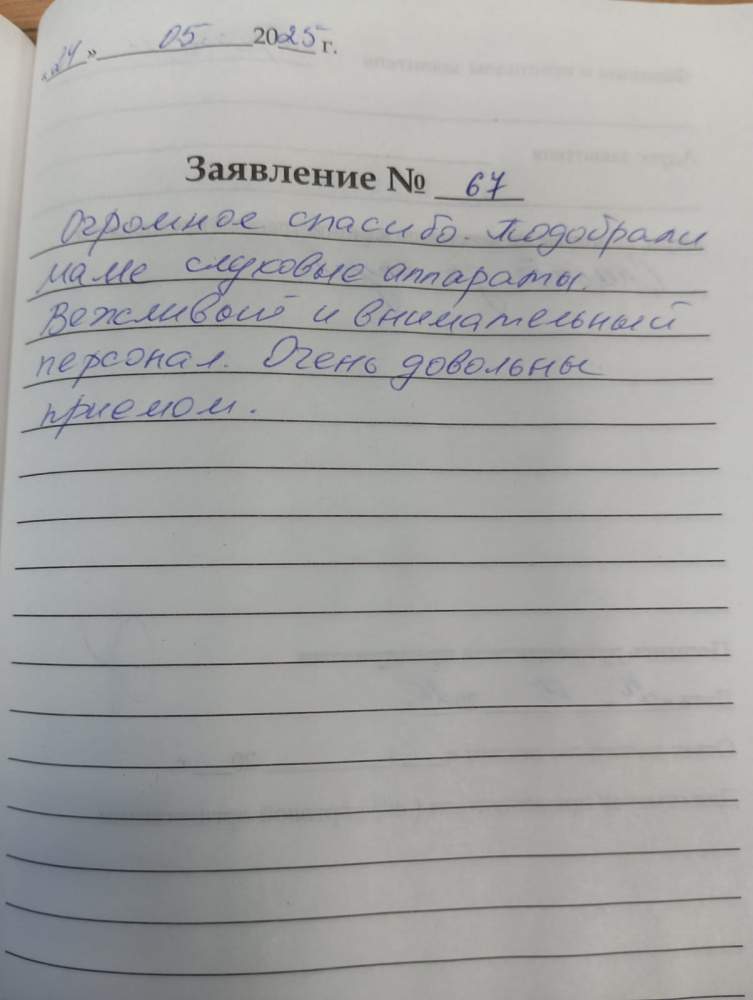 «24» 05 2025 г.
Заявление № 67
Огромное спасибо. Подобрали
маме слуховые аппараты.
Вежливый и внимательный
персонал. Очень довольны
приемом.